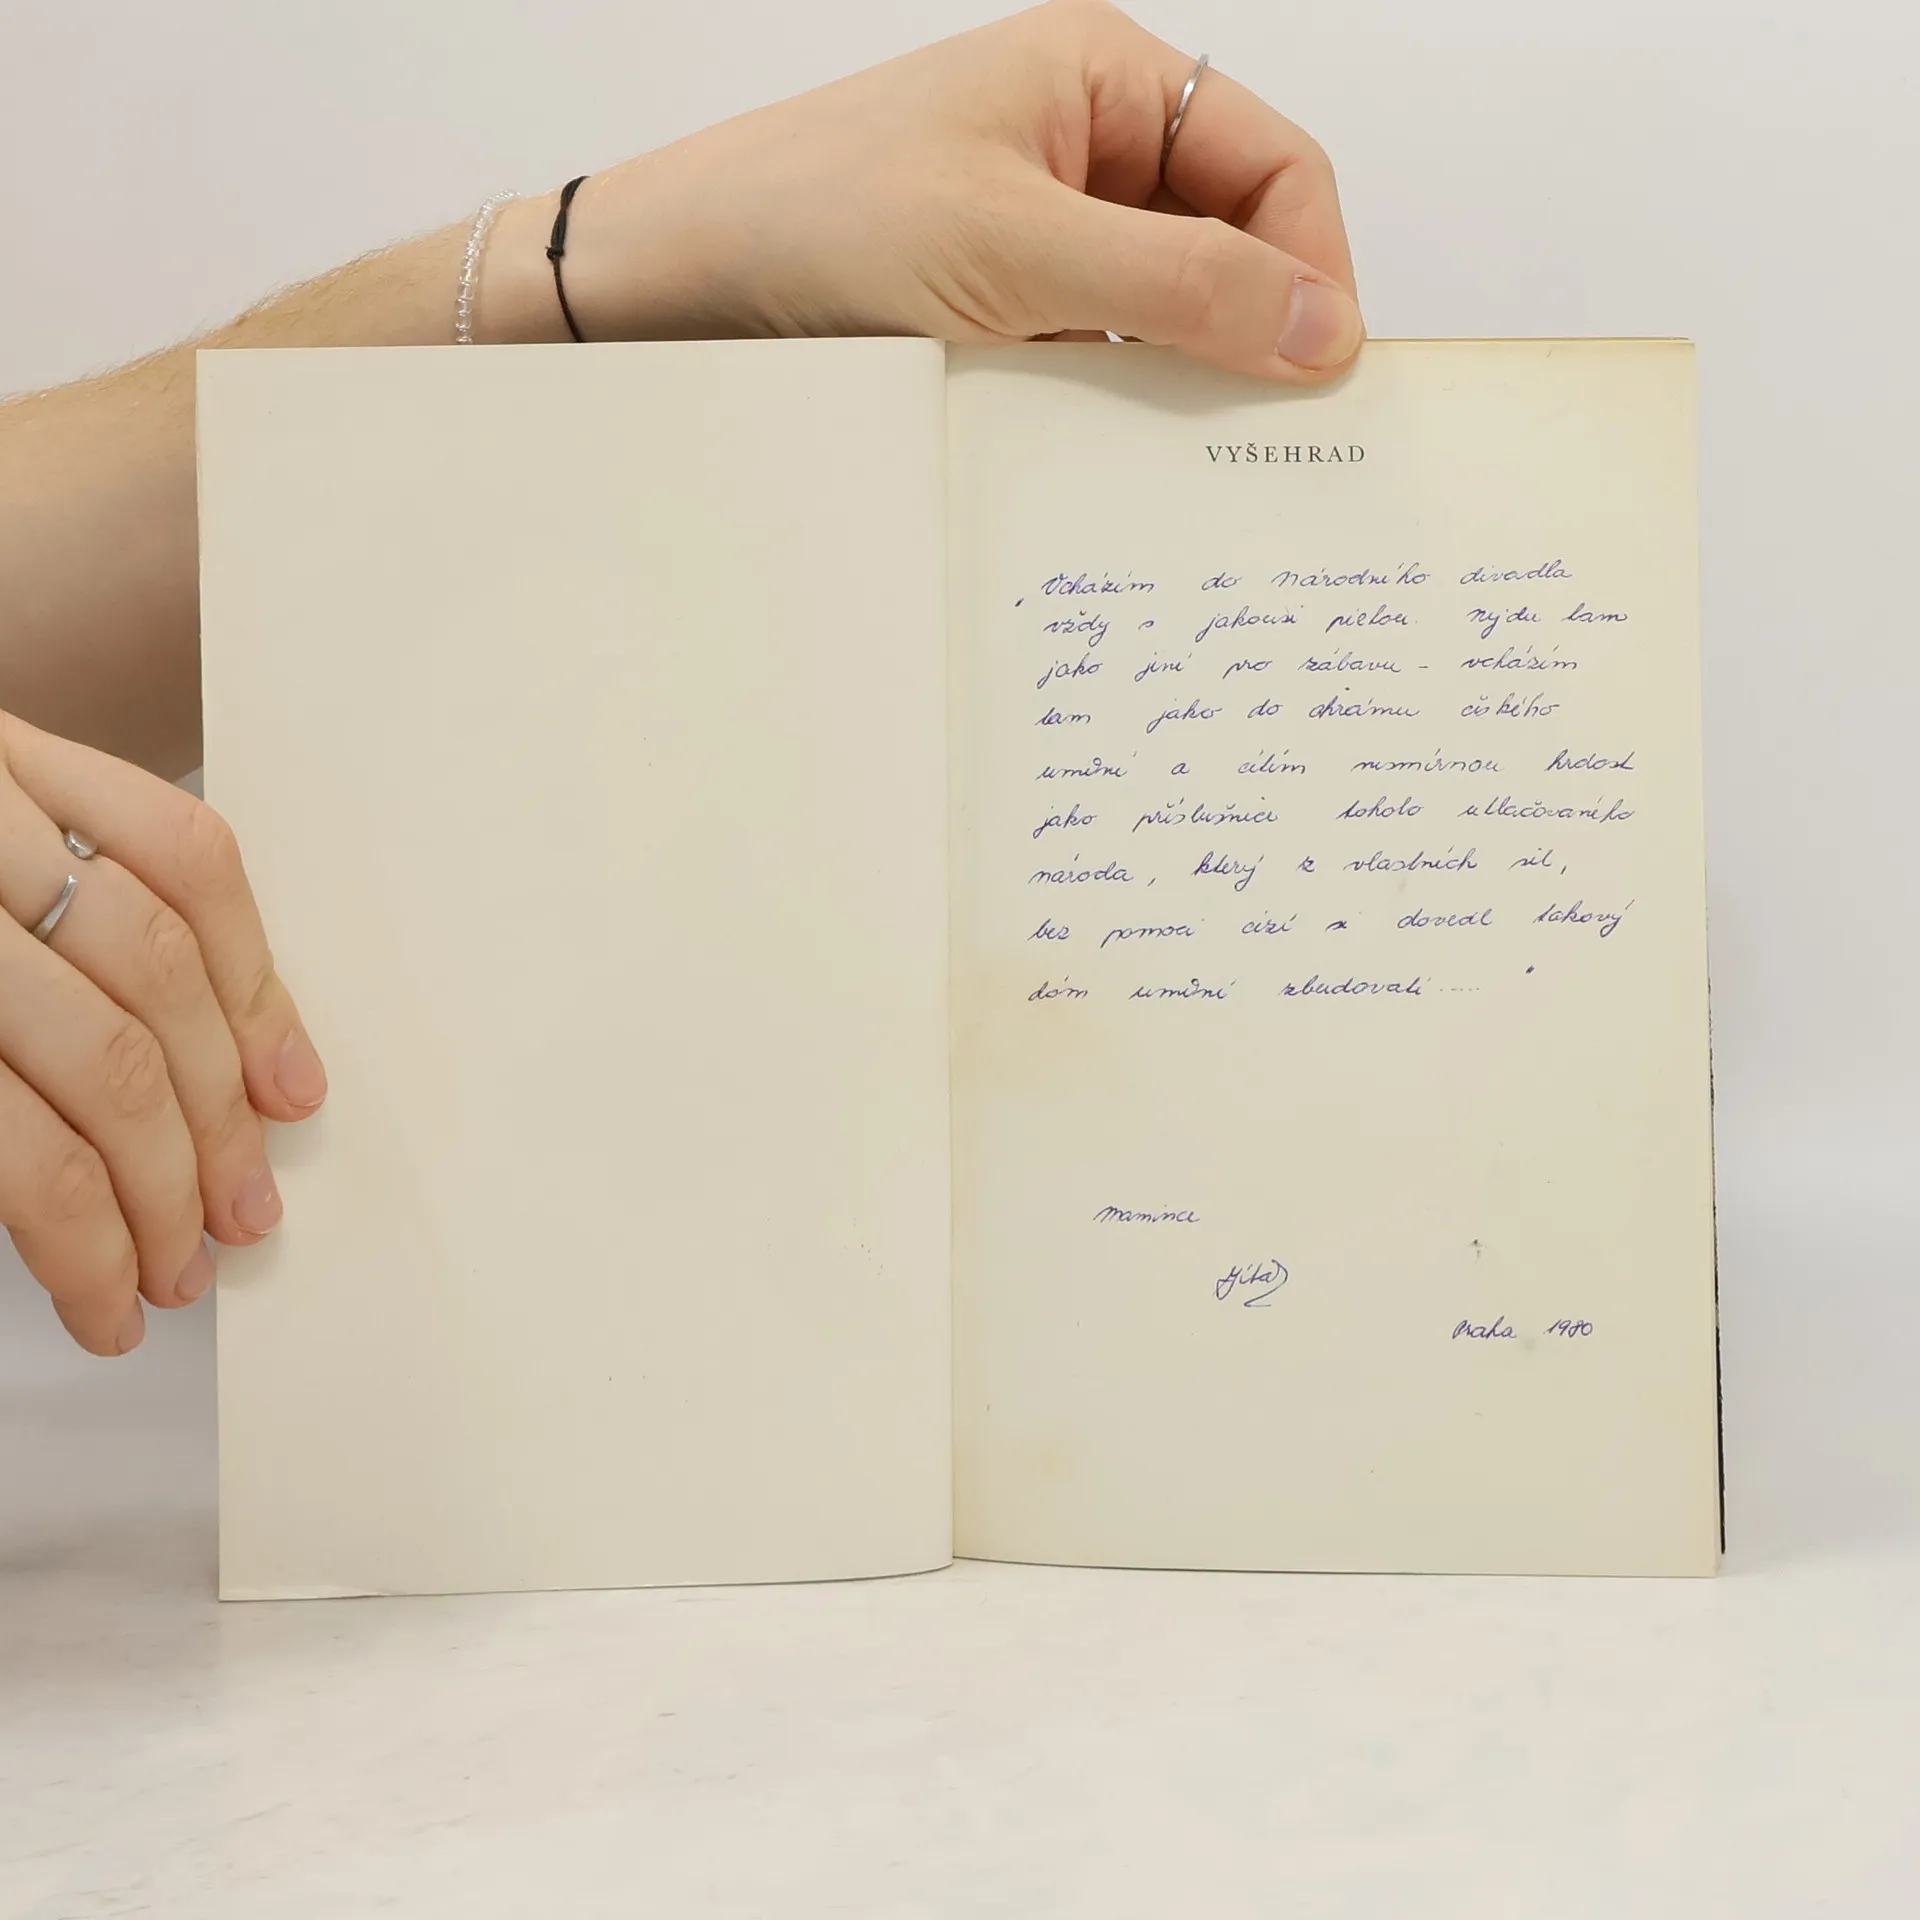 VYŠEHRAD
„Vcházím do Národního divadla
vždy s jakousi pietou. Nejdu tam
jako jiní pro zábavu - vcházím
tam jako do chrámu českého
umění a cítím nesmírnou hrdost
jako příslušnice tohoto utlačovaného
národa, který z vlastních sil,
bez pomoci cizí si dovedl takový
dóm umění zbudovati ....."
Mamince
Jíťa
Praha 1980